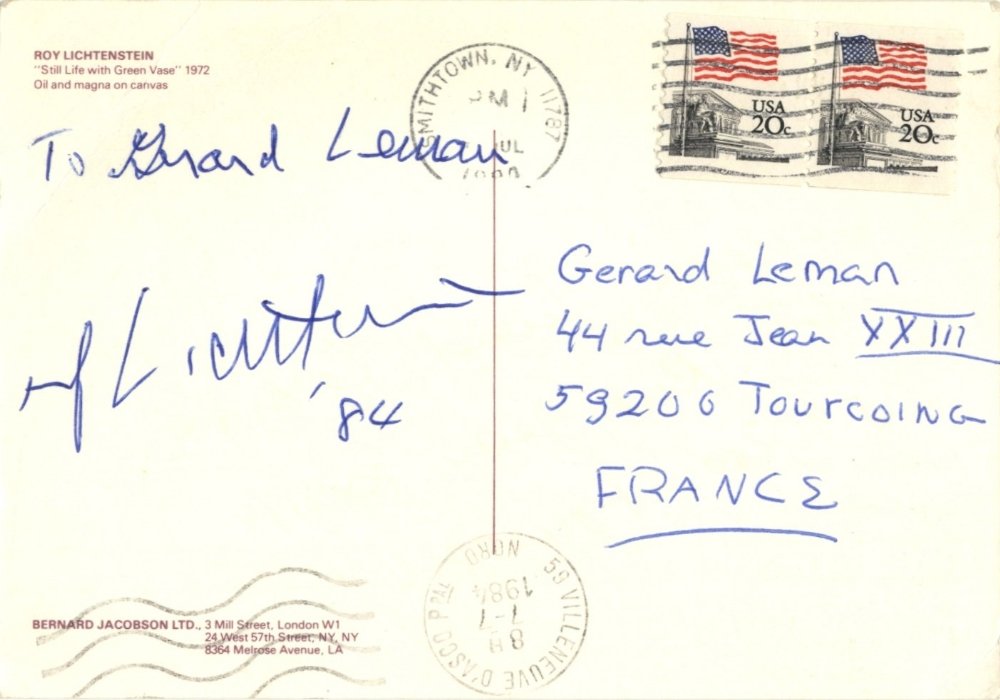 ROY LICHTENSTEIN
"Still Life with Green Vase" 1972
Oil and magna on canvas
SMITHTOWN, NY 11787
PM
JUL
USA
20c
USA
20c
To Gerard Leman
rf Lichtenstein
'84
Gerard Leman
44 rue Jean XXIII
59200 TOURCOING
FRANCE
59 VILLENEUVE D'ASCQ PPAL
NORD
8H
7-7
1984
BERNARD JACOBSON LTD., 3 Mill Street, London W1
24 West 57th Street, NY, NY
8364 Melrose Avenue, LA